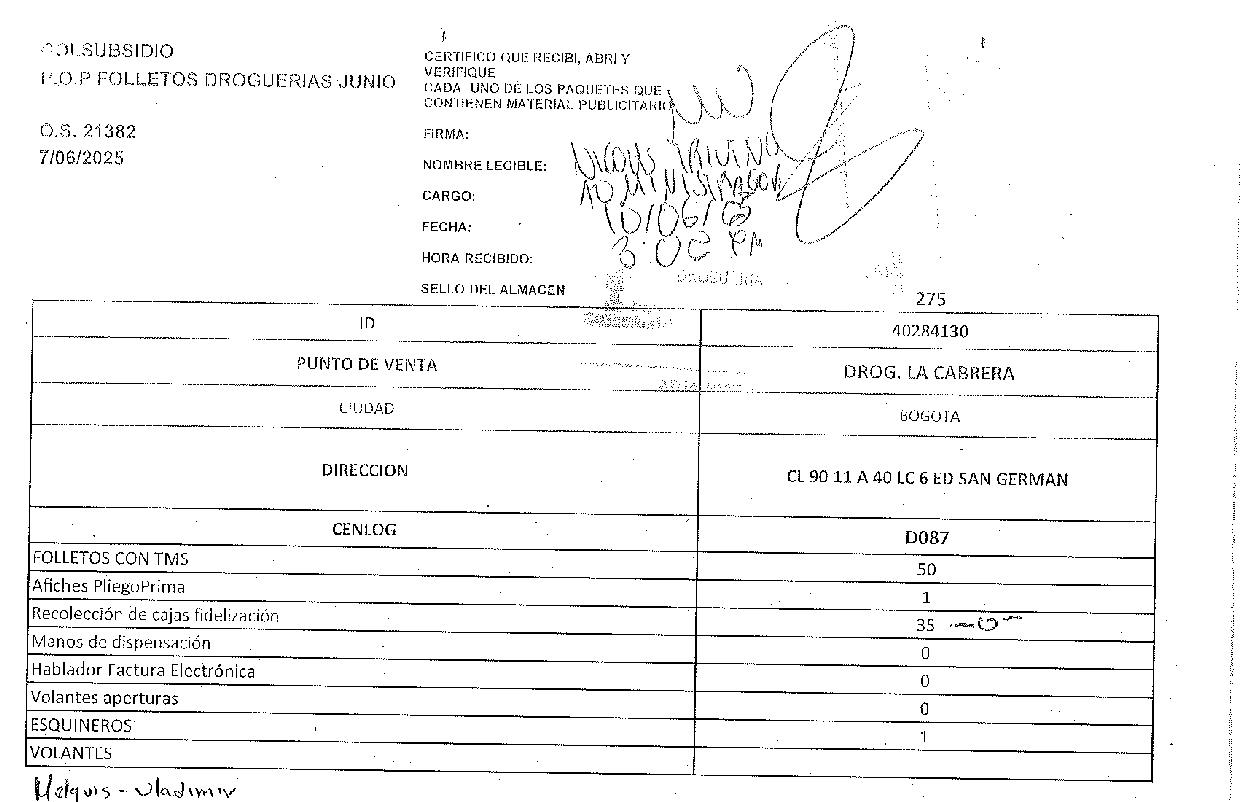 COLSUBSIDIO
P.O.P FOLLETOS DROGUERIAS JUNIO
O.S. 21382
7/06/2025
CERTIFICO QUE RECIBI, ABRI Y
VERIFIQUE
CADA UNO DE LOS PAQUETES QUE
CONTIENEN MATERIAL PUBLICITARIO
FIRMA:
NOMBRE LEGIBLE:
CARGO: ADMINISTRADOR
FECHA: 10/06/25
HORA RECIBIDO: 3:00 PM
SELLO DEL ALMACEN
275
ID 40284130
PUNTO DE VENTA DROG. LA CABRERA
CIUDAD BOGOTA
DIRECCION CL 90 11 A 40 LC 6 ED SAN GERMAN
CENLOG D087
FOLLETOS CON TMS 50
Afiches PliegoPrima 1
Recolección de cajas fidelización 35 -0-
Manos de dispensación 0
Hablador Factura Electrónica 0
Volantes aperturas 0
ESQUINEROS 1
VOLANTES
Melquis - Vladimir